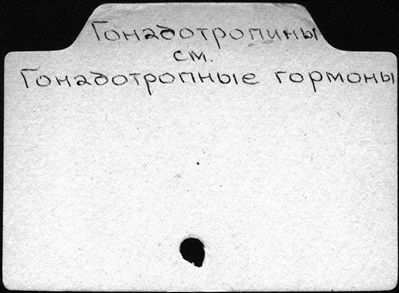 Гонадотропины
см.
Гонадотропные гормоны